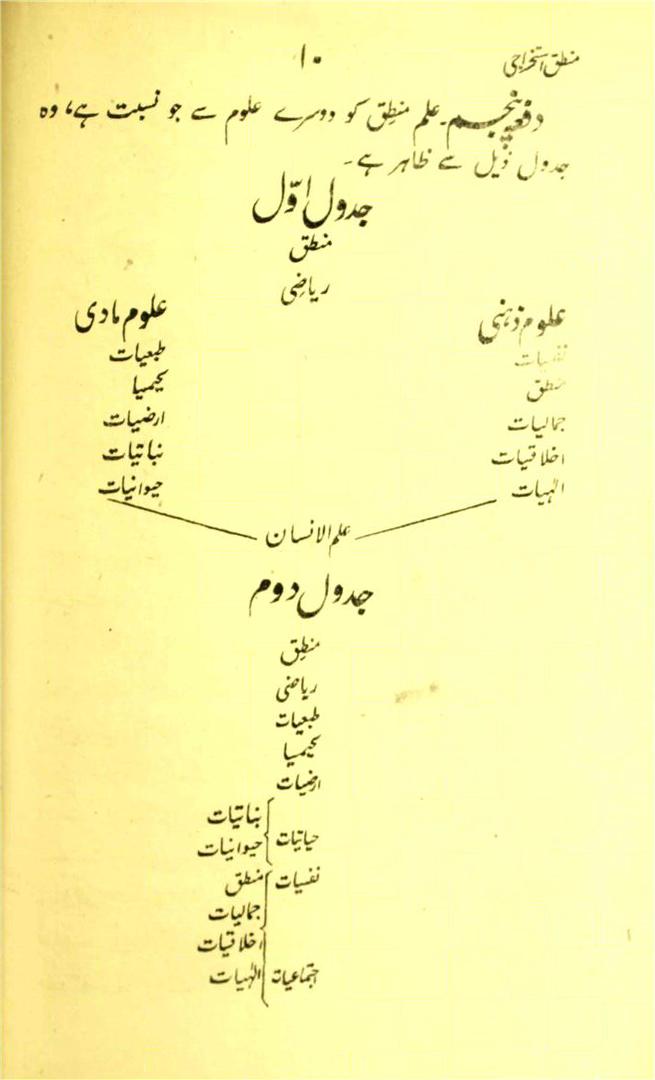 منطق استخراجی
۱۰
دفعہ پنجم۔ علم منطق کو دوسرے علوم سے جو نسبت ہے، وہ
جدول ذیل سے ظاہر ہے۔
جدول اوّل
منطق
ریاضی
علوم ذہنی
نفسیات
منطق
جمالیات
اخلاقیات
الٰہیات
علوم مادی
طبعیات
کیمیا
ارضیات
نباتیات
حیوانیات
علم الانسان
جدول دوم
منطق
ریاضی
طبعیات
کیمیا
ارضیات
حیاتیات
نباتیات
حیوانیات
نفسیات
منطق
جمالیات
اخلاقیات
اجتماعیات
الٰہیات